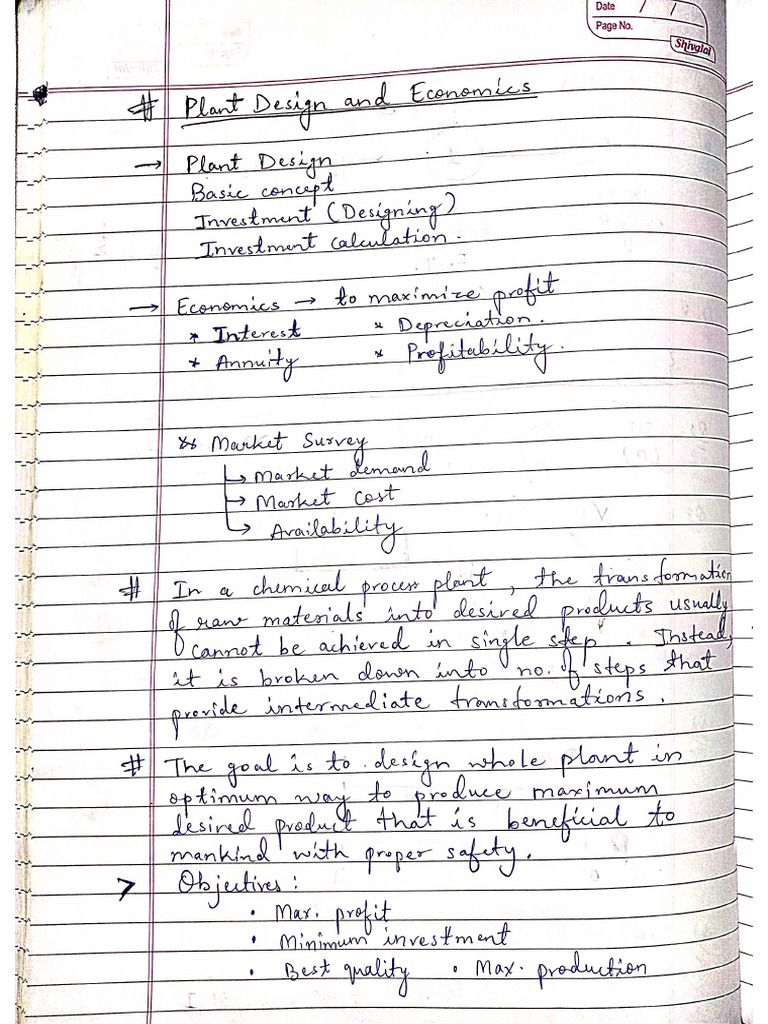 Date / /
Page No.
Shivalal
# Plant Design and Economics
→ Plant Design
Basic concept
Investment (Designing)
Investment calculation.
→ Economics → to maximize profit
* Interest * Depreciation.
* Annuity * Profitability.
** Market Survey
↳ Market demand
↳ Market cost
↳ Availability
# In a chemical process plant, the transformation
of raw materials into desired products usually
cannot be achieved in single step. Instead,
it is broken down into no. of steps that
provide intermediate transformations.
# The goal is to design whole plant in
optimum way to produce maximum
desired product that is beneficial to
mankind with proper safety.
> Objectives:
• Max. profit
• Minimum investment
• Best quality • Max. production